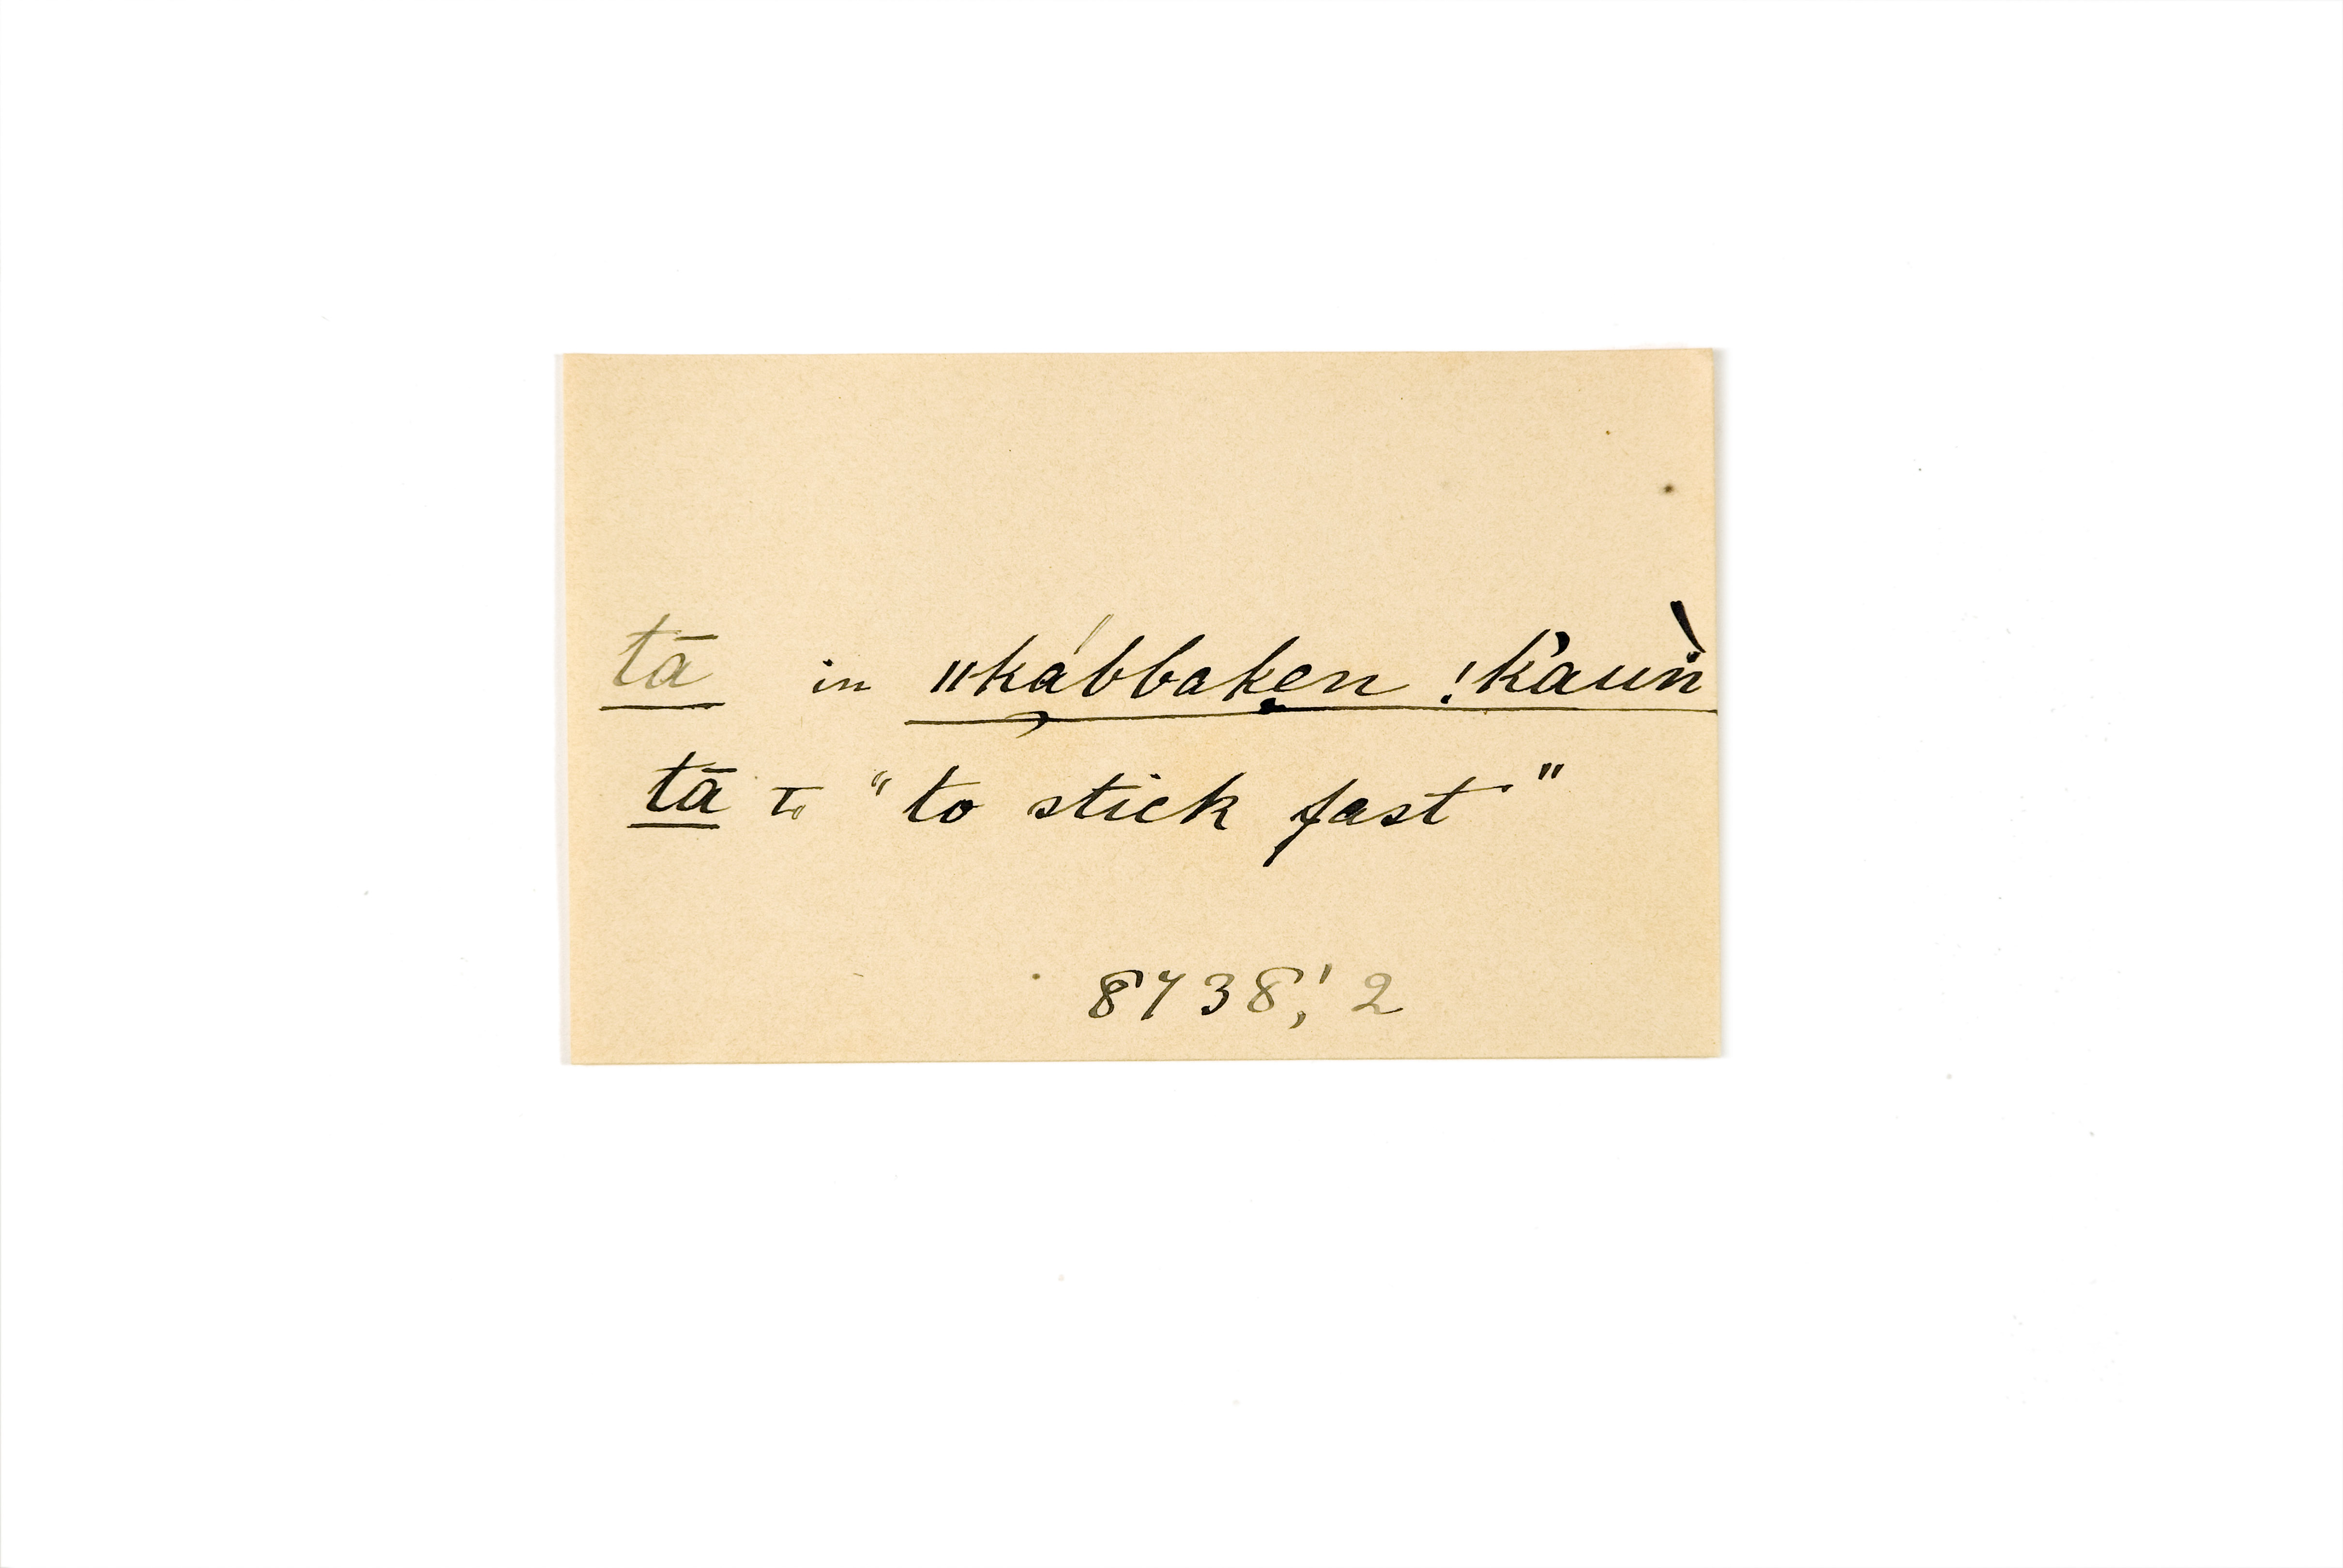 tā in ǁkábbaken !k'auṅ
tā to "to stick fast"
8738,' 2